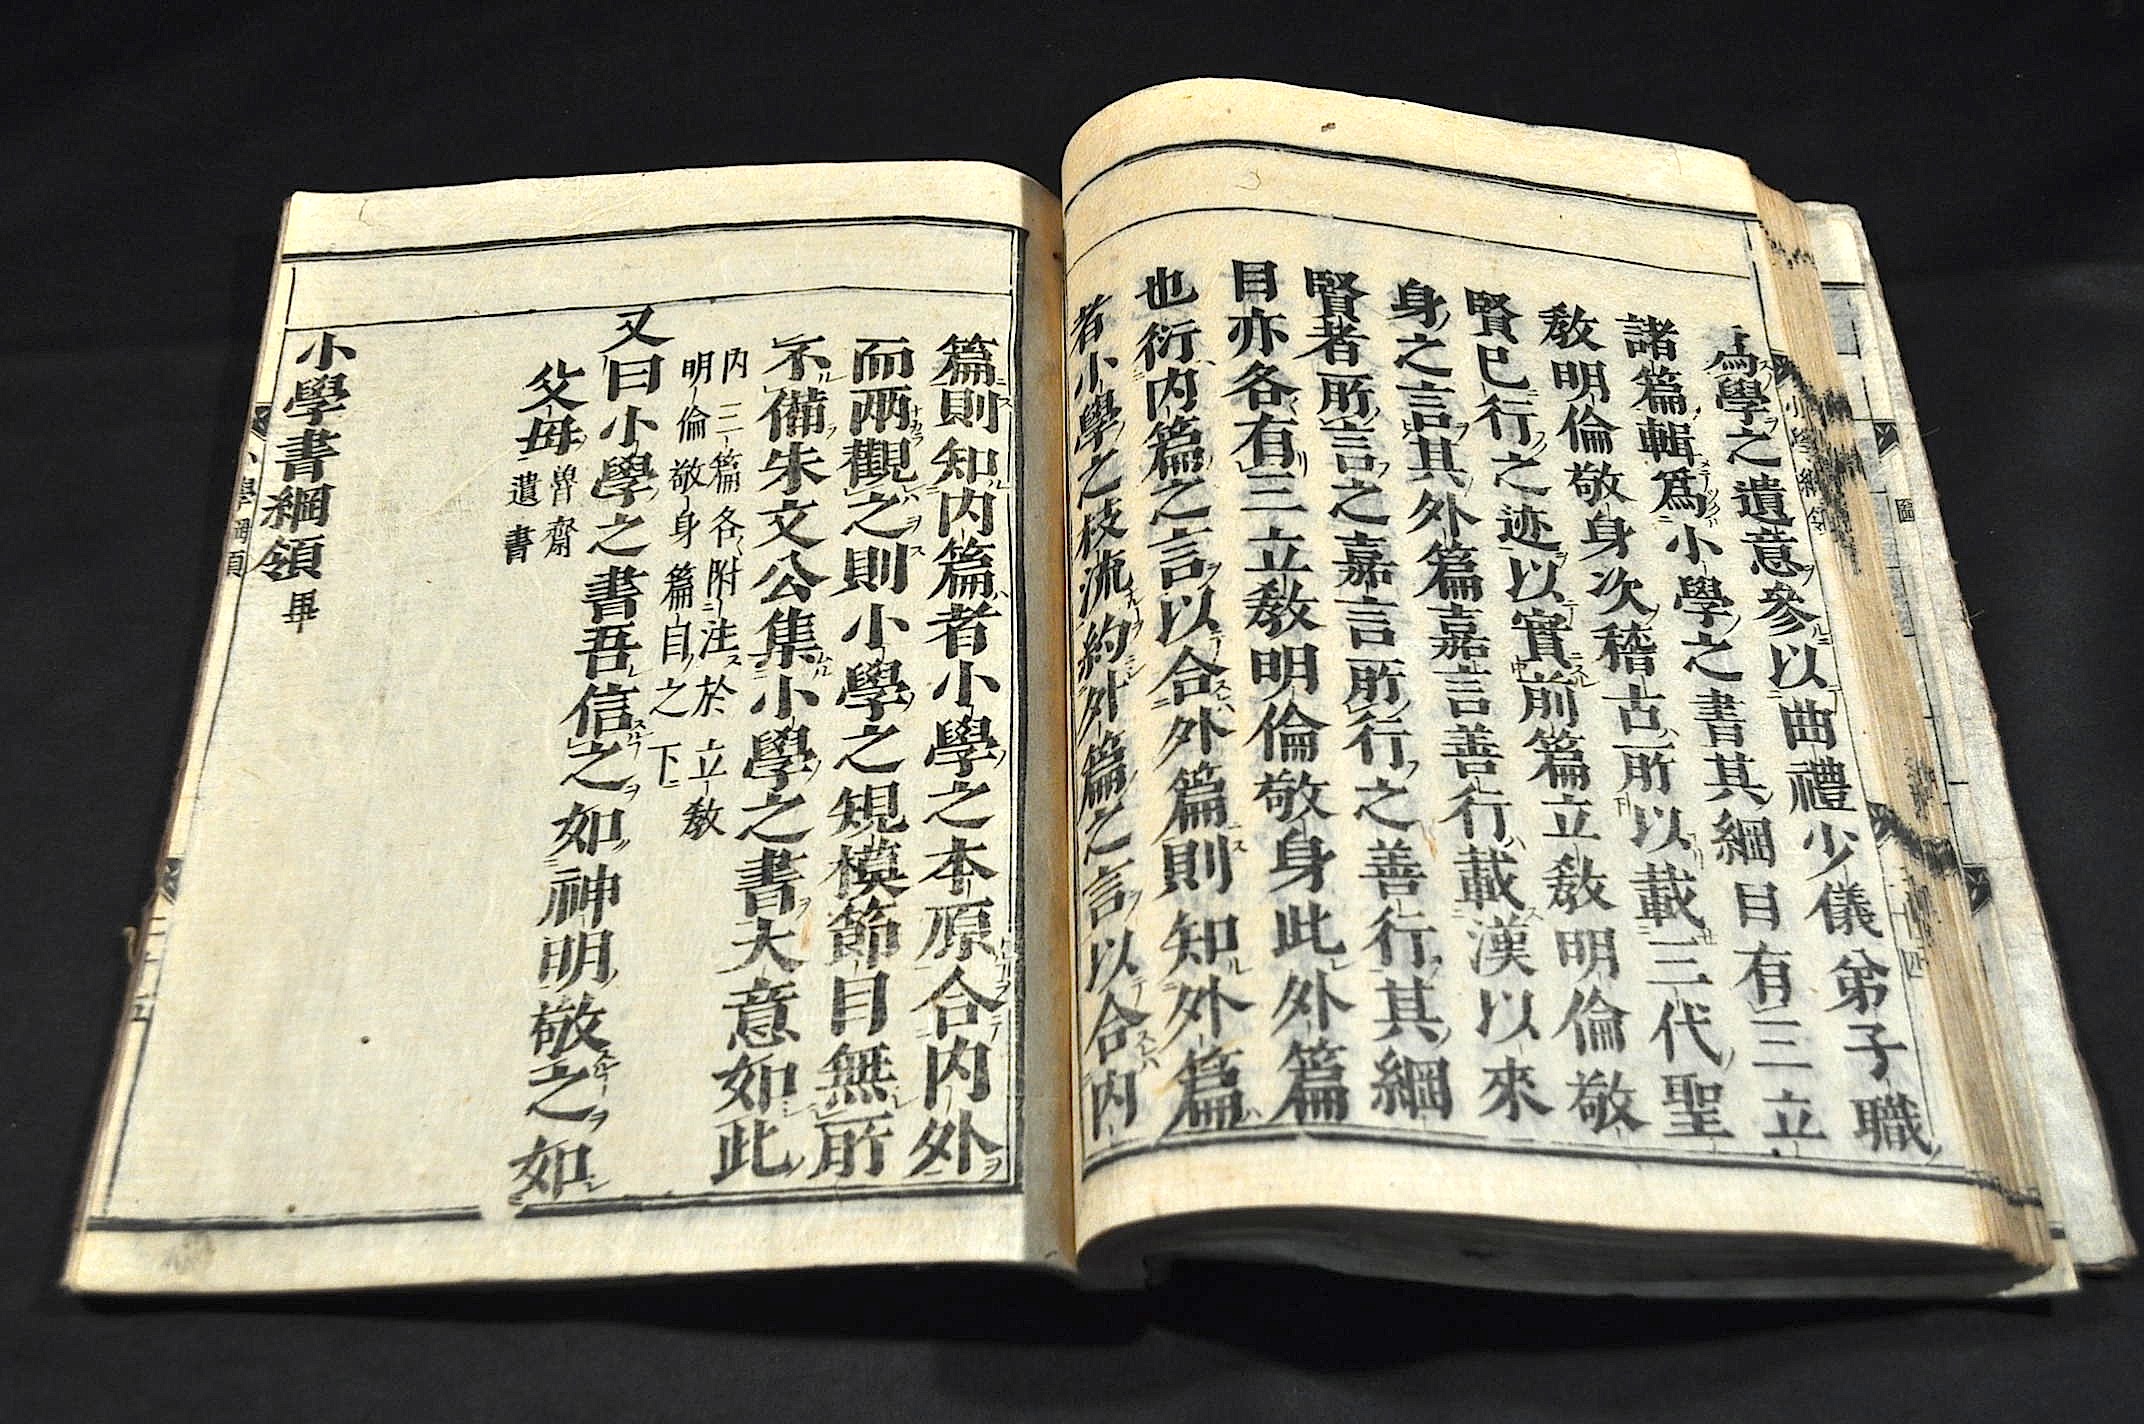 爲學之遺意參以曲禮少儀弟子職
諸篇輯爲小學之書其綱目有三立
敎明倫敬身次稽古所以載三代聖
賢已行之迹以實前篇立敎明倫敬
身之言其外篇嘉言善行載漢以來
賢者所言之嘉言所行之善行其綱
目亦各有三立敎明倫敬身此外篇
也衍内篇之言以合外篇則知外篇
者小學之枝流約外篇之言以合内
篇則知内篇者小學之本原合内外
而兩觀之則小學之規模節目無所
不備朱文公集小學之書大意如此
内三篇各附注於立敎
明倫敬身篇目之下
又曰小學之書吾信之如神明敬之如
父母
魯齋
遺書
小學書綱領畢